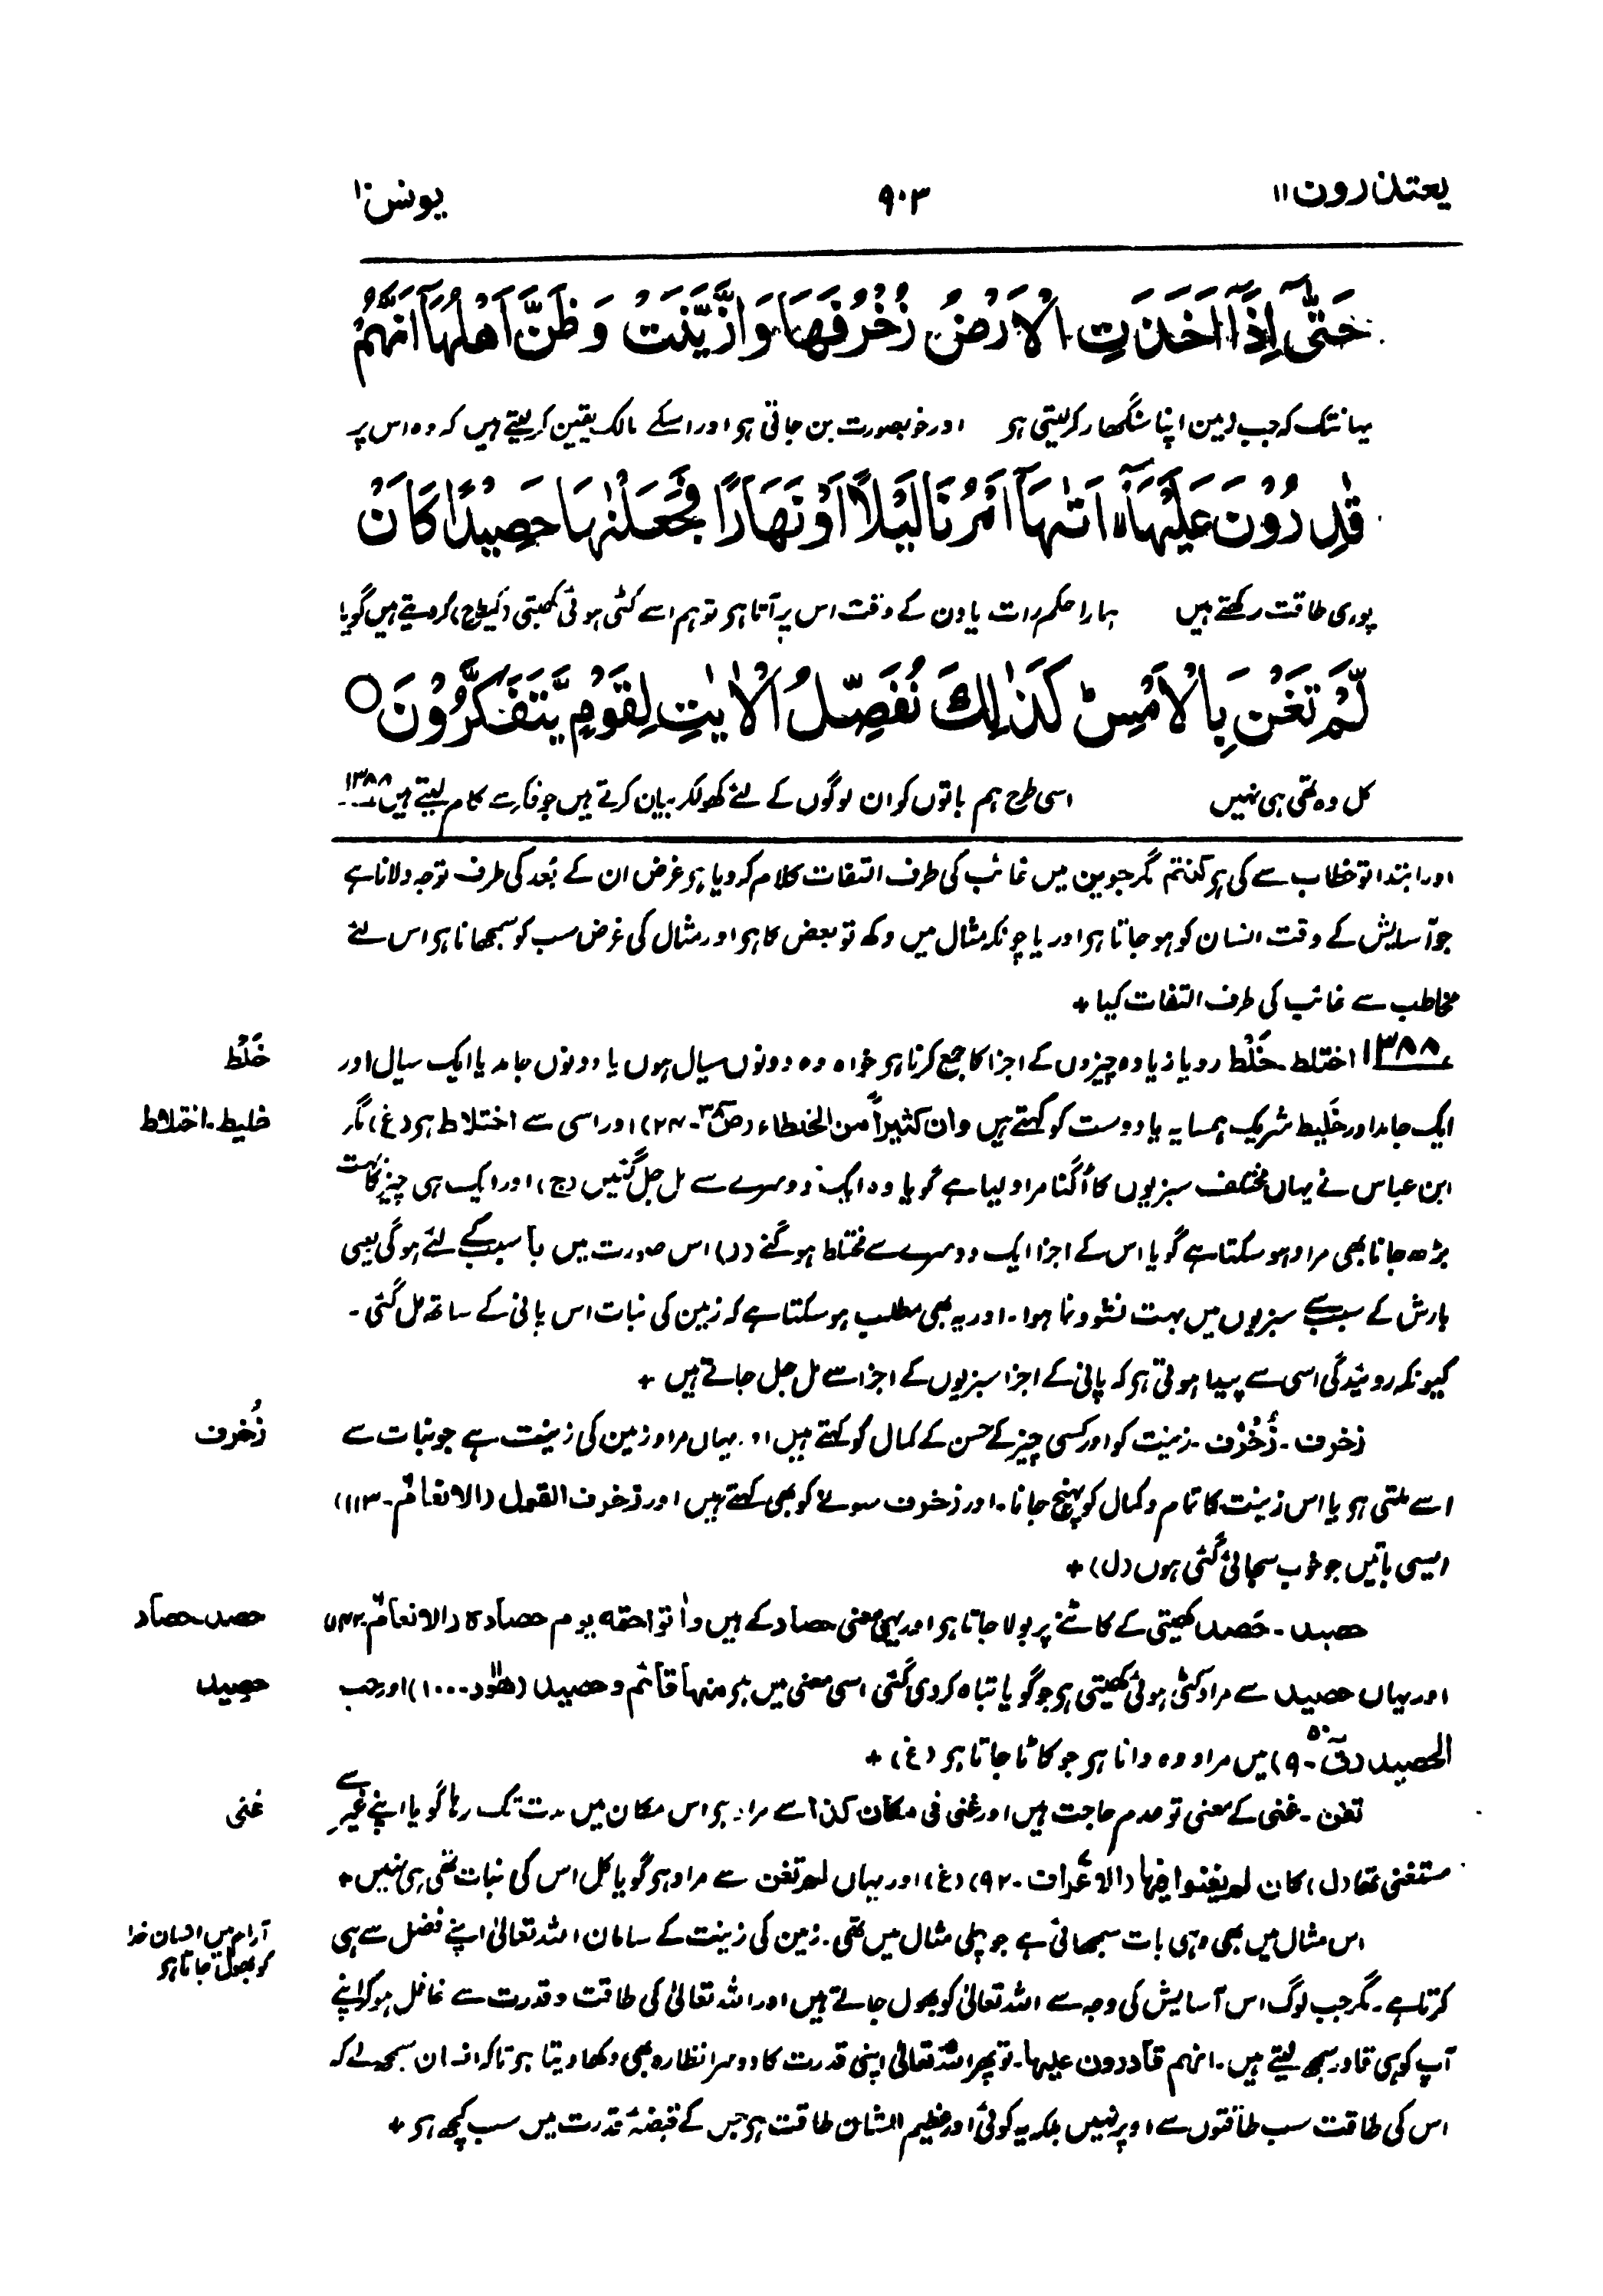 یعتذرون ۱۱
۹۰۳
یونس ۱۰
حَتّٰۤی اِذَاۤ اَخَذَتِ الْاَرْضُ زُخْرُفَهَا وَازَّیَّنَتْ وَظَنَّ اَهْلُهَاۤ اَنَّهُمْ
یہانتک کہ جب زمین اپنا سنگھار کر لیتی ہو اور خوبصورت بن جاتی ہو اور اسکے مالک یقین کر لیتے ہیں کہ وہ اس پر
قٰدِرُوْنَ عَلَیْهَاۤ ۙ اَتٰىهَاۤ اَمْرُنَا لَیْلًا اَوْ نَهَارًا فَجَعَلْنٰهَا حَصِیْدًا كَاَنْ
پوری طاقت رکھتے ہیں ہمارا حکم رات یا دن کے وقت اس پر آتا ہو تو ہم اسے کٹی ہوئی کھیتی (کیطرح) کر دیتے ہیں گویا
لَّمْ تَغْنَ بِالْاَمْسِ ؕ كَذٰلِكَ نُفَصِّلُ الْاٰیٰتِ لِقَوْمٍ یَّتَفَكَّرُوْنَ ○
کل وہ تھی ہی نہیں اسی طرح ہم باتوں کو ان لوگوں کے لئے کھولکر بیان کرتے ہیں جو فکر سے کام لیتے ہیں ۱۳۸۸
اور ابتدا تو خطاب سے کی ہو کنتم مگر جرین میں غائب کی طرف التفات کلام کر دیا ہو غرض ان کے بُعد کی طرف توجہ دلانا ہے
جو آسایش کے وقت انسان کو ہو جاتا ہو اور یا چونکہ مثال میں دکھ تو بعض کا ہو اور مثال کی غرض سب کو سمجھانا ہو اس لئے
مخاطب سے غائب کی طرف التفات کیا +
۱۳۸۸ اختلط۔ خَلْط دو یا زیادہ چیزوں کے اجزا کا جمع کرنا ہو خواہ وہ دونوں سیال ہوں یا دونوں جامد یا ایک سیال اور
خَلْط
ایک جامد اور خَلِیط شریک ہمسایہ یا دوست کو کہتے ہیں وان کثیراً من الخلطاء (صٓ ۳۸۔ ۲۴) اور اسی سے اختلاط ہو (غ) مگر
خلیط۔ اختلاط
ابن عباس نے یہاں مختلف سبزیوں کا اُگنا مراد لیا ہے گویا وہ ایک دوسرے سے مل جل گئیں (ج) اور ایک ہی چیز کا بہت
بڑھ جانا بھی مراد ہو سکتا ہے گویا اس کے اجزا ایک دوسرے سے مختلط ہو گئے (ر) اس صورت میں با سبب کے لئے ہو گی یعنی
بارش کے سبب سے سبزیوں میں بہت نشوونما ہوا۔ اور یہ بھی مطلب ہو سکتا ہے کہ زمین کی نبات اس پانی کے ساتھ مل گئی۔
کیونکہ روئیدگی اسی سے پیدا ہوتی ہو کہ پانی کے اجزا سبزیوں کے اجزا سے مل جل جاتے ہیں +
زخرف۔ زُخْرُف۔ زینت کو اور کسی چیز کے حسن کے کمال کو کہتے ہیں اور یہاں مراد زمین کی زینت ہے جو نبات سے
زُخرف
اسے ملتی ہو یا اس زینت کا تمام و کمال کو پہنچ جانا۔ اور زخرف سونے کو بھی کہتے ہیں اور زخرف القول (الانعام ۶۔ ۱۱۳)
ایسی باتیں جو خوب سجائی گئی ہوں (ل) +
حصید۔ حَصد کھیتی کے کاٹنے پر بولا جاتا ہو اور یہی معنی حصاد کے ہیں واٰتوا حقه یوم حصاده (الانعام ۶۔ ۱۴۲)
حصد۔ حصاد
اور یہاں حصید سے مراد کٹی ہوئی کھیتی ہو جو گویا تباہ کر دی گئی اسی معنی میں ہو منها قائم و حصید (ھود ۱۱۔ ۱۰۰) اور حب
حصید
الحصید (قٓ ۵۰۔ ۹) میں مراد وہ دانا ہو جو کاٹا جاتا ہو (غ) +
تغن۔ غنی کے معنی تو عدم حاجت ہیں اور غنی فی مکان کذا سے مراد ہو اس مکان میں مدت تک رہا گویا اپنے غیر سے
غنی
مستغنی تھا (ل) کان لم یغنوا فیها (الاعراف ۷۔ ۹۲) (غ) اور یہاں لم تغن سے مراد ہو گویا کل اس کی نبات تھی ہی نہیں +
اس مثال میں بھی وہی بات سمجھائی ہے جو پہلی مثال میں تھی۔ زمین کی زینت کے سامان اللہ تعالیٰ اپنے فضل سے ہی
آرام میں انسان خدا
کو بھول جاتا ہو
کرتا ہے۔ مگر جب لوگ اس آسایش کی وجہ سے اللہ تعالیٰ کو بھول جاتے ہیں اور اللہ تعالیٰ کی طاقت و قدرت سے غافل ہو کر اپنے
آپ کو ہی قادر سمجھ لیتے ہیں۔ انهم قادرون علیها۔ تو پھر اللہ تعالیٰ اپنی قدرت کا دوسرا نظارہ بھی دکھا دیتا ہو تاکہ انسان سمجھ لے کہ
اس کی طاقت سب طاقتوں سے اوپر نہیں بلکہ یہ کوئی اور عظیم الشان طاقت ہو جس کے قبضۂ قدرت میں سب کچھ ہو +